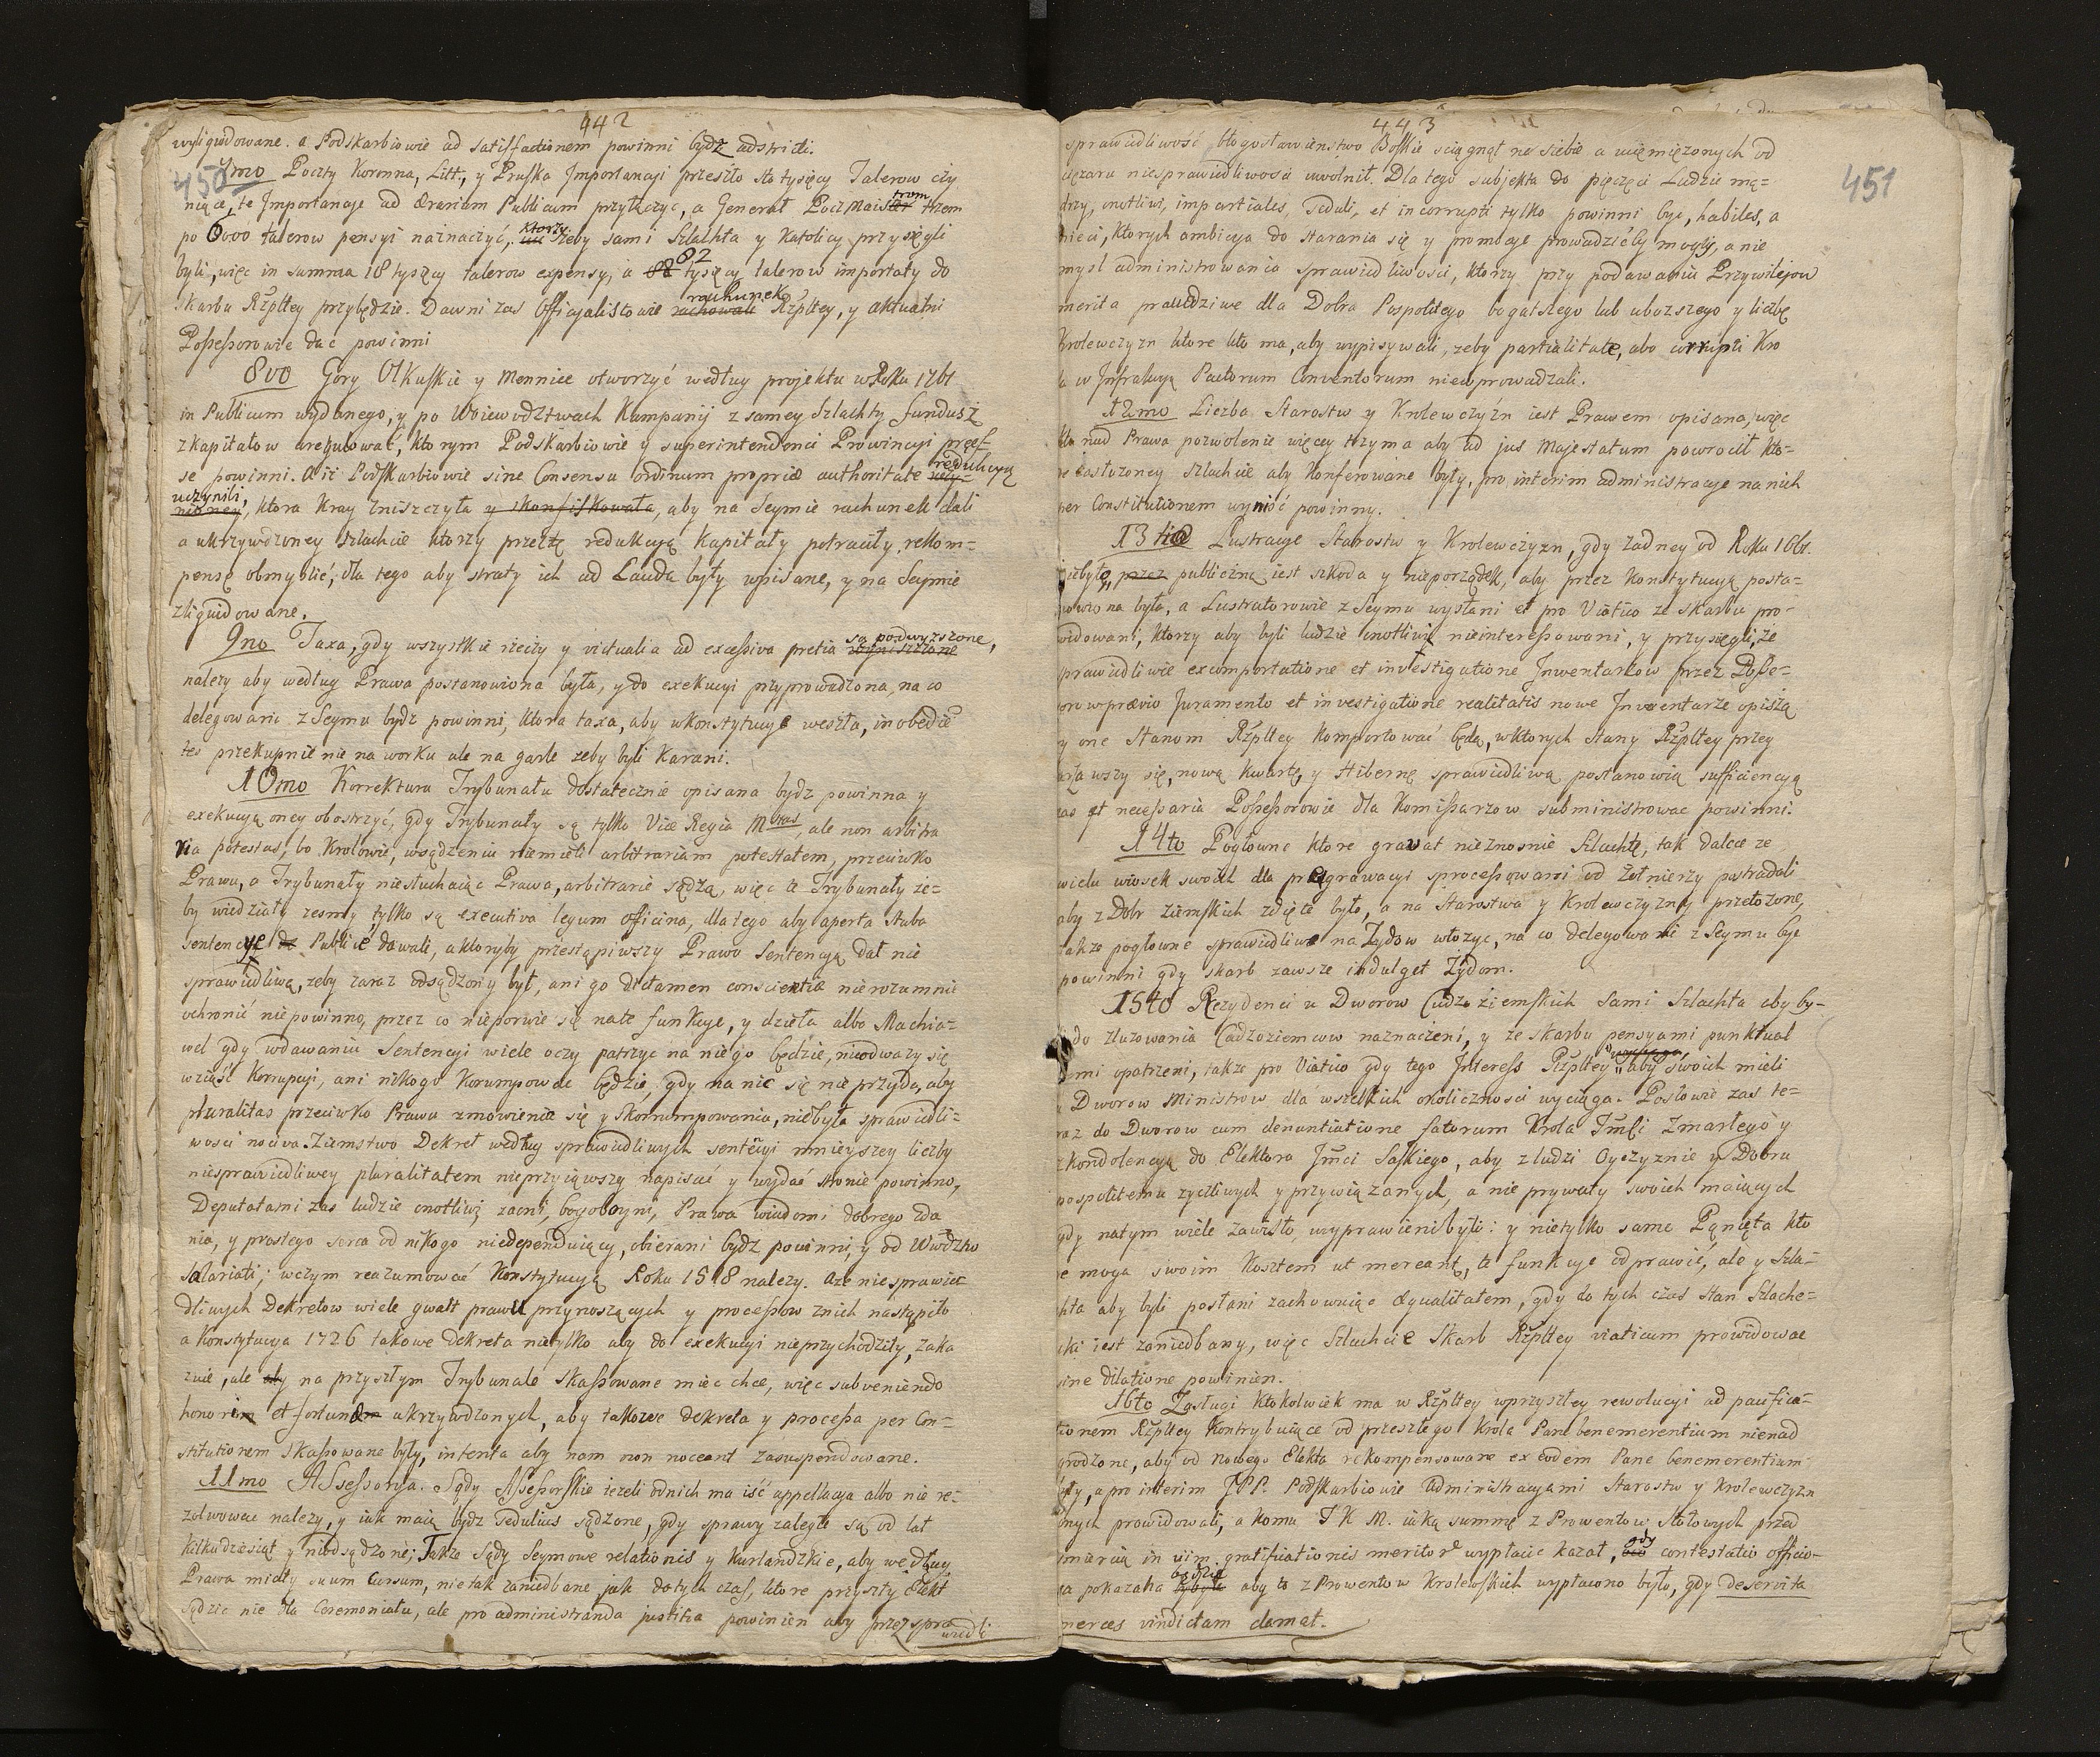 442
wyliquidowane. a Podskarbiowie ad satisfactionem powinni bydz adstricti.
450
7mo Poczty Koronna, Litt., y Pruska Importancyi przeszło sto tysięcy Talerow czy
niące, te Importancye ad Ærarium Publicum przyłączyć, a Generał Poczmaistrom trzem
po 6000 talerow pensyi naznaczyć, ktorzy żeby sami Szlachta y Katolicy przysięgli
byli, więc in summa 18 tysięcy talerow expensy, a 82 tysięcy talerow importały do
skarbu Rzpltey przybędzie. Dawni zas Officyalistowie rachunek Rzpltey, y aktualni
Possessorowie dać powinni
8vo Gory Olkuskie y Mennice otworzyć według projektu w Roku 1761
in Publicum wydanego, y po Woiewodztwach Kampanij z samey Szlachty fundusz
z kapitałow uregulować, ktorym Podskarbiowie y superintendenci Prowincyi præes-
se powinni. A iż Podskarbiowie sine Consensu Ordinum propria authoritate redukcyą
uczynili, ktora Kray zniszczyła y skonfiskowała, aby na Seymie rachunek dali
a ukrzywdzoney szlachcie ktorzy przez tę redukcyą kapitały potraciły, rekom=
pensę obmyślić, dla tego aby straty ich ad Lauda były wpisane, y na Seymie
zliquidowane.
9no Taxa, gdy wszystkie rzeczy y victualia ad excessiva pretia są podwyższone,
nalezy aby według Prawa postanowiona była, y do exekucyi przyprowadzona, na co
delegowani z Seymu bydz powinni, ktora taxa, aby w konstytucye weszła, inobedien
tes przekupnie nie na worku ale na garle zeby byli karani.
10mo Korrektura Trybunału dostatecznie opisana bydz powinna y
exekucyą oney obostrzyć, gdy Trybunały są tylko Vice Regia Mtas, ale non arbitra
ria potestas, bo Krolowie, w sądzeniu niemieli arbitrariam potestatem, przeciwko
Prawu, a Trybunały niesłuchaiąc Prawa, arbitrarie sądzą, więc te Trybunały że=
by wiedziały zesmy tylko są executiva legum officina, dla tego aby aperta stuba
sentencye Publicè dawali, a ktoryby przestąpiwszy Prawo Sentencyą dał nie
sprawiedliwą, zeby zaraz odsądzony był, ani go dictamen conscientiæ nierozumnie
ochronić niepowinno, przez co nieporwie się na te funkcye, y dzieła albo Machia=
wel gdy w dawaniu Sentencyi wiele oczy patrzyc na niego będzie, nieodwazy się
wziąść Korrupcyi, ani nikogo Korumpowac będzie, gdy na nic się nie przyda, aby
pluralitas przeciwko Prawu zmowienia się y skorrumpowania, niebyła sprawiedli=
wosci nociva. Ziemstwo Dekret według sprawiedliwych sentencyi mnieyszey liczby
niesprawiedliwey pluralitatem nieprzyiąwszy napisać y wydać stronie powinno,
Deputatami zas ludzie cnotliwi, zacni, bogoboyni, Prawa wiadomi dobrego zda
nia, y prostego serca od nikogo niedependuiący, obierani bydz powinni, y od Wwdztw
Salariati; w czym reazumować Konstytucyą Roku 1578 nalezy. A ze niesprawie
dliwych Dekretow wiele gwałt prawu przynoszących y processow z nich nastąpiło
a Konstytucya 1726 takowe Dekreta nietylko aby do exekucyi nieprzychodziły, zaka
zuie, ale aby na przyszłym Trybunale skassowane mieć chce, więc subveniendo
honorem et fortunæ ukrzywdzonych, aby takowe dekreta y processa per Con=
stitutionem skassowane były, intenta aby nam non noceant zasuspendowane.
11mo Assessorya. Sądy Assessorskie iezeli od nich ma iść appellacya albo nie re=
zolwowac nalezy, y iak maią bydz sedulius sądzone, gdy sprawy zaległe są od lat
kilkudziesiąt y nieodsądzone; Także Sądy Seymowe relationis y Kurlandzkie, aby według
Prawa miały suum Cursum, nie tak zaniedbane jak do tych czas, ktore przyszły Elekt
sądzić nie dla Ceremoniału, ale pro administranda justitia powinien aby przez spra
wiedli
443
451
sprawiedliwość błogosławieństwo Boskie sciągnął na siebie a uciemiężonych od
ciężaru niesprawiedliwosci uwolnił. Dla tego subjekta do pieczęci Ludzie mą=
drzy, cnotliwi, impartiales, seduli, et incorrupti tylko powinni być, habiles, a
nieci, ktorych ambicya do starania się y promocye prowadziłby mogły, a nie
mysl administrowania sprawiedliwosci, ktorzy przy podawaniu Przywilejow
merita prawdziwe dla Dobra Pospolitego bogatszego lub uboższego y liczbę
Krolewczyzn ktore kto ma, aby wypisywali, zeby partialitate, abo corrupti Kro
la w Infrakcyą Pactorum Conventorum niewprowadzali.
12mo Liczba Starostw y Krolewczyzn iest Prawem opisana, więc
kto nad Prawa pozwolenie więcey trzyma aby ad jus Majestatum powrocił kto=
re zasłużoney szlachcie aby konferowane były, pro interim administracye na nich
per Constitutionem wyniść powinny.
13tio Lustracye Starostw y Krolewczyzn, gdy zadney od Roku 1661.
niebyło, przez publiczną iest szkoda y nieporządek, aby przez konstytucyą posta=
nowiona była, a Lustratorowie z Seymu wysłani et pro Viatico ze skarbu pro-
widowani, ktorzy aby byli ludzie cnotliwi nieinteressowani, y przysięgli, że
sprawiedliwie excomportatione et investigatione Inwentarzow przez Posse=
sorow prævio Juramento et investigatione realitatis nowe Inwentarze opiszą
y one Stanom Rzpltey komportować będą, w ktorych Stany Rzpltey przey
rzawszy się, nową Kwartę, y Hibernę sprawiedliwą postanowią sufficiencyą
zas et necessaria Possessorowie dla Komissarzow subministrowac powinni.
14to Pogłowne ktore gravat nieznosnie Szlachtę, tak dalece ze
wielu wiosek swoich dla præagrawacyi sprocessowani od Żołnierzy postradali
aby z Dobr Ziemskich zdięte było, a na Starostwa y Krolewczyzny przełożone,
takze pogłowne sprawiedliwe na Zydow włożyc, na co delegowani z Seymu byc
powinni gdy skarb zawsze indulget Żydom.
15to Rezydenci u Dworow Cudzoziemskich sami Szlachta aby by-
li do zluzowania Cudzoziemcow naznaczeni, y ze skarbu pensyami punktual
nemi opatrzeni, takze pro Viatico gdy tego Interess Rzpltey aby swoich mieli
u Dworow Ministrow dla wszelkich okolicznosci wyciąga. Posłowie zas te=
raz do Dworow cum denuntiatione fatorum Krola Jmsci Zmarłego y
z kondolencyą do Elektora Jmci Saskiego, aby z ludzi Oyczyznie y Dobru
pospolitemu zyczliwych y przywiązanych, a nie prywaty swoich maiących
gdy na tym wiele zawisło, wyprawieni byli: y nietylko same Panięta kto
re mogą swoim kosztem ut mereant, te funkcye odprawić, ale y Szla=
chta aby byli posłani zachowuiąc æqualitatem, gdy do tych czas Stan Szlache=
cki iest zaniedbany, więc Szlachcie Skarb Rzpltey viaticum prowidowac
sine dilatione powinien.
16to Zasługi Ktokolwiek ma w Rzpltey w przyszłey rewolucyi ad pacifica=
tionem Rzpltey kontrybuiące od przeszłego Krola Pane benemerentium nienad
grodzone, aby od nowego Elekta rekompensowane ex eodem Pane benemerentium
były, a pro interim JPP. Podskarbiowie Administracyami Starostw y Krolewczyzn
onych prowidowali, a komu J K M. iaką summę z Prowentow stołowych przed
smiercią in vim gratificationis meritor. wypłacić kazał, gdy contestatio officio-
sa pokazana będzie aby to z Prowentow Krolewskich wypłacono było, gdy deservita
merces vindictam clamat.